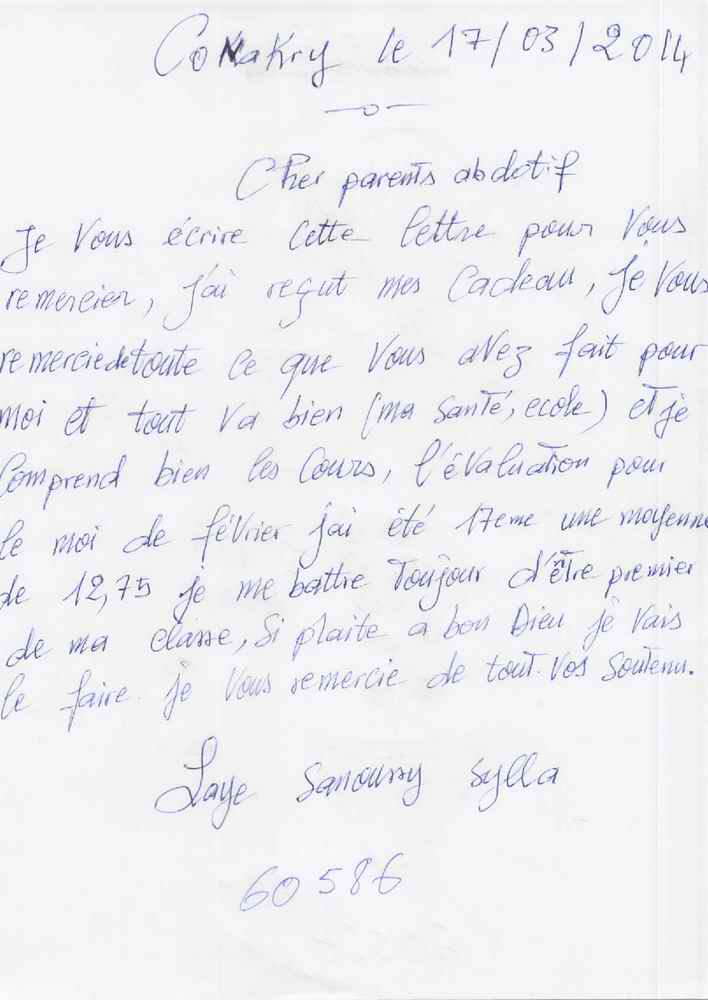 Conakry le 17/03/2014
Cher parents abdotif
Je Vous écrire cette lettre pour Vous
remercier, j'ai reçut mes Cadeau, Je Vous
remercie de toute ce que Vous avez fait pour
moi et tout va bien (ma santé, ecole) et je
Comprend bien les Cours, l'évaluation pour
le moi de février j'ai été 17eme une moyenne
de 12,75 je me battre Toujour d'être premier
de ma classe, Si plaite a bon Dieu je Vais
le faire. je Vous remercie de tout. Vos Soutenu.
Laye Sanoussy Sylla
60586